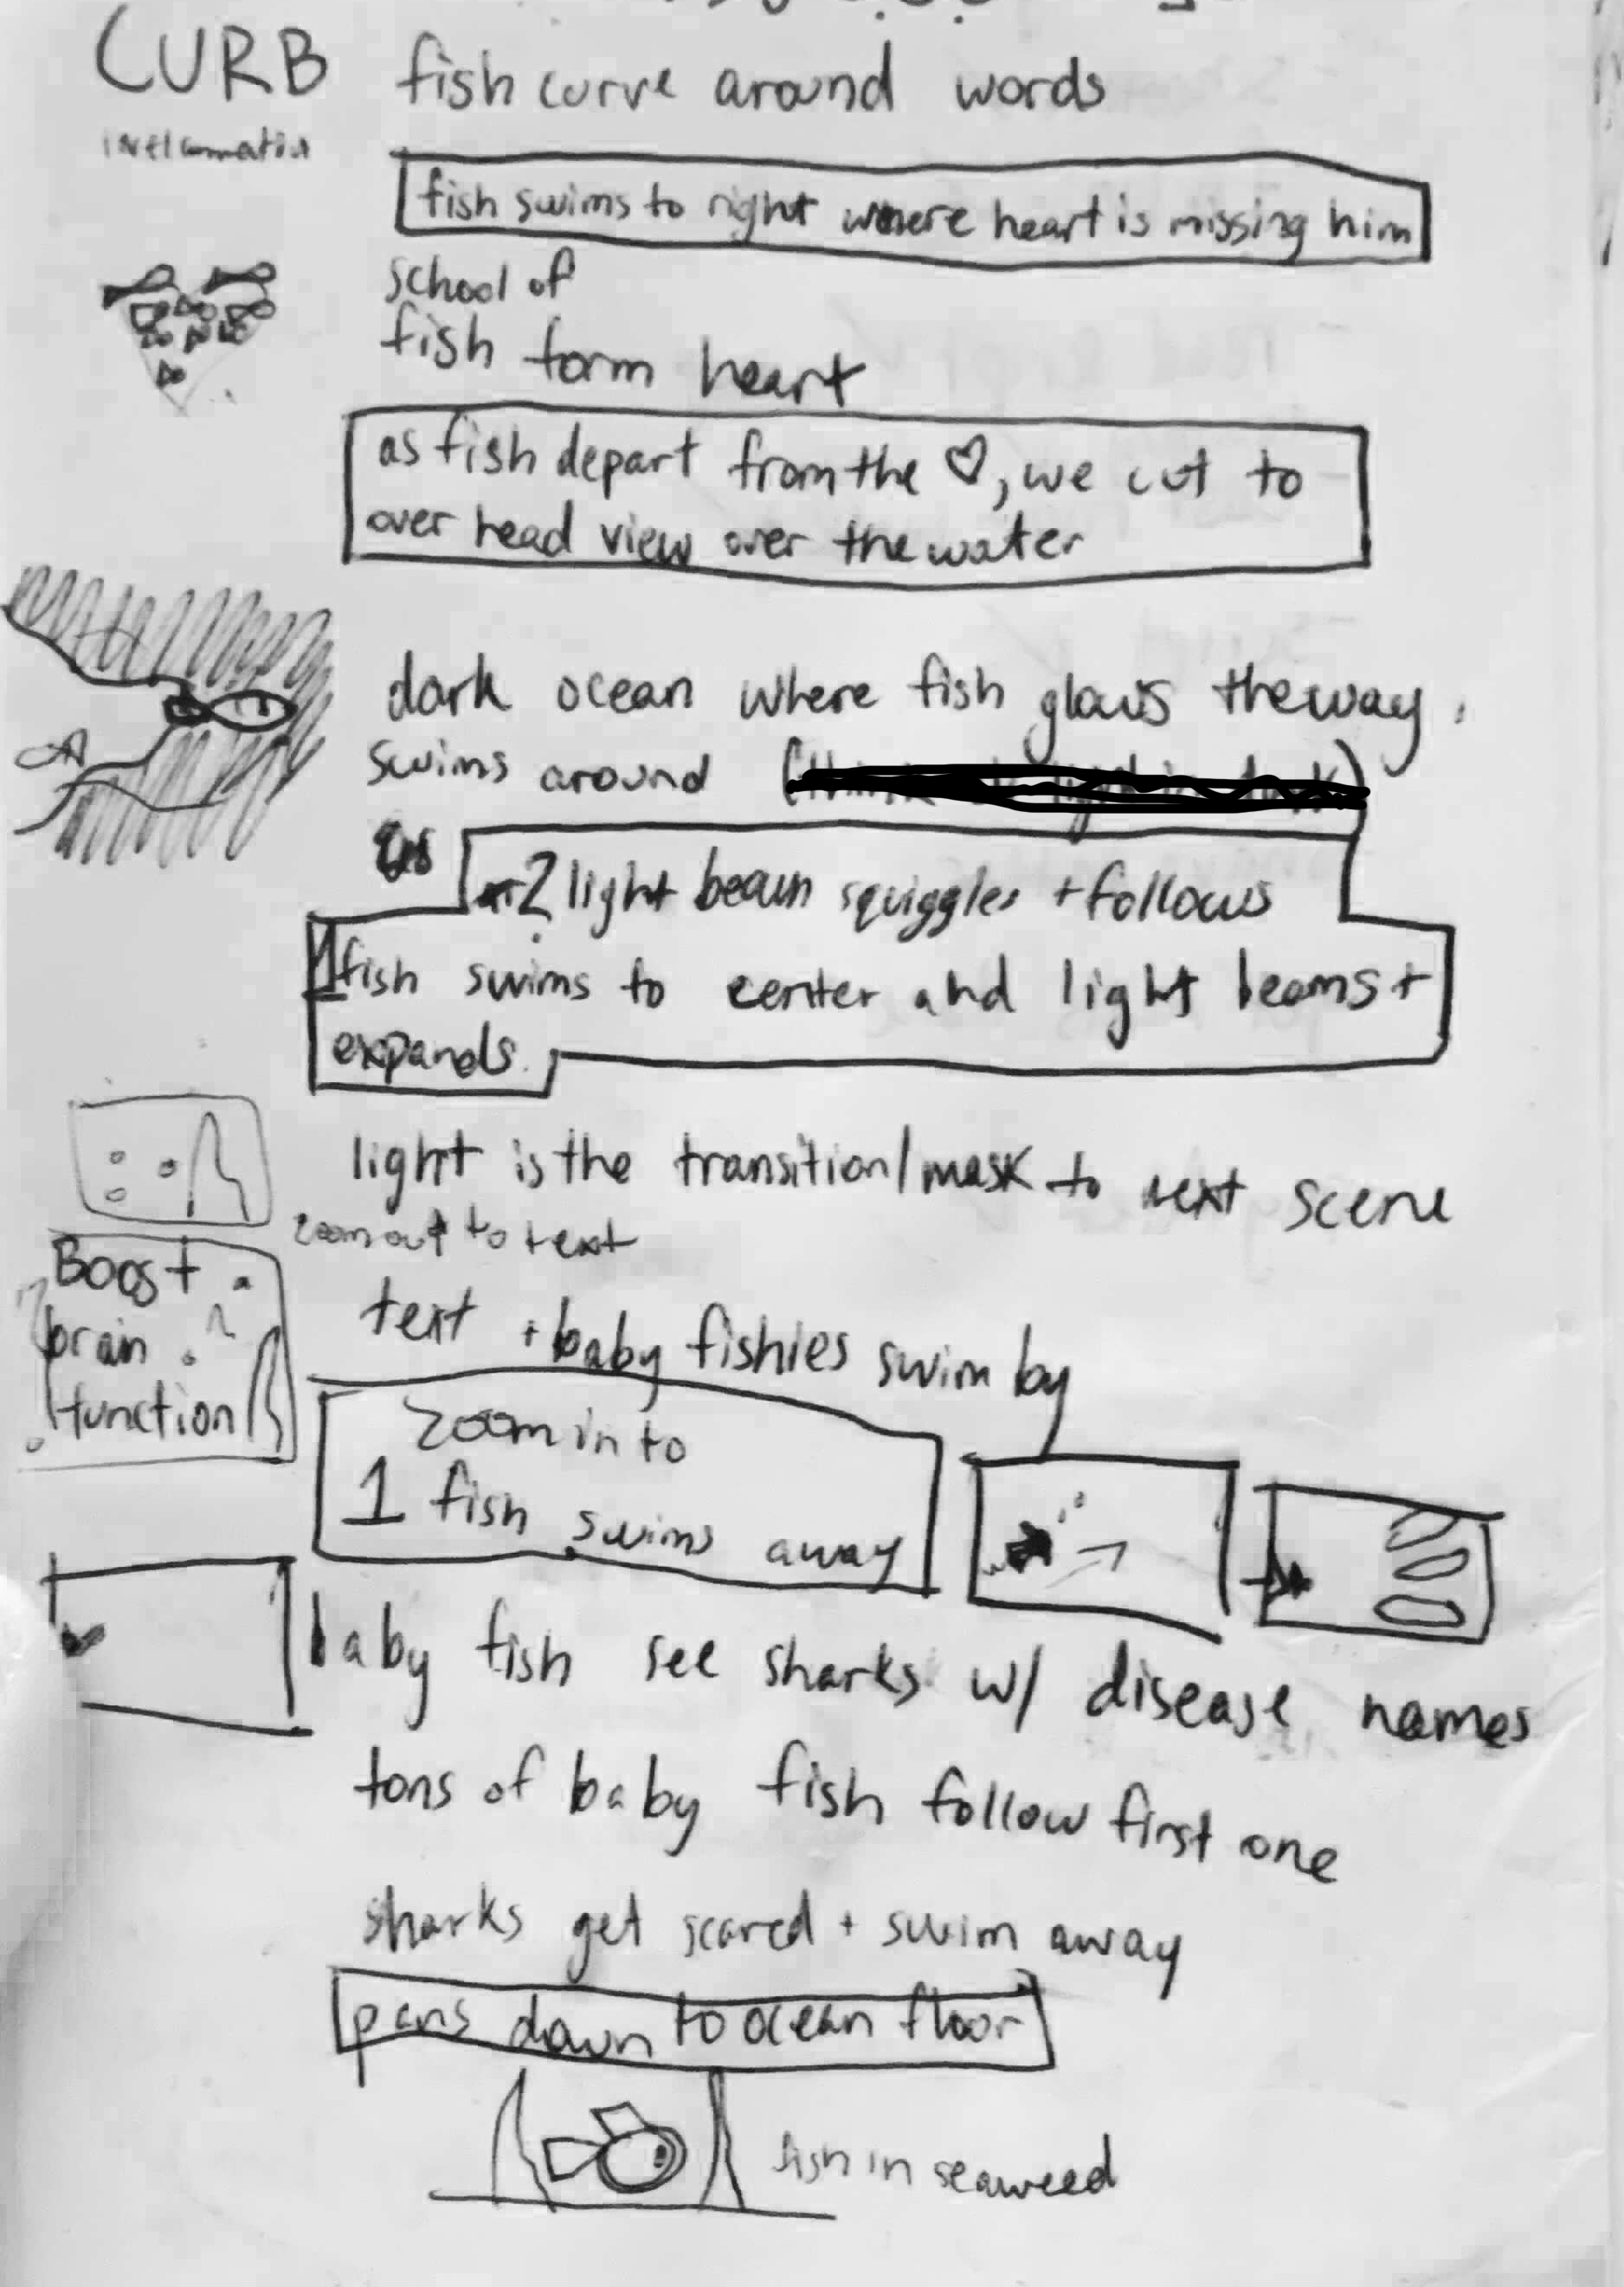 CURB
fish curve around words
fish swims to right where heart is missing him
school of
fish form heart
as fish depart from the ♡, we cut to
over head view over the water
dark ocean where fish glows the way.
swims around
2 light beam squiggles + follows
1 fish swims to center and light beams +
expands.
light is the transition/mask to next scene
zoom out to text
Boost
brain
function
text + baby fishies swim by
zoom in to
1 fish swims away
baby fish see sharks w/ disease names
tons of baby fish follow first one
sharks get scared + swim away
pans down to ocean floor
fish in seaweed